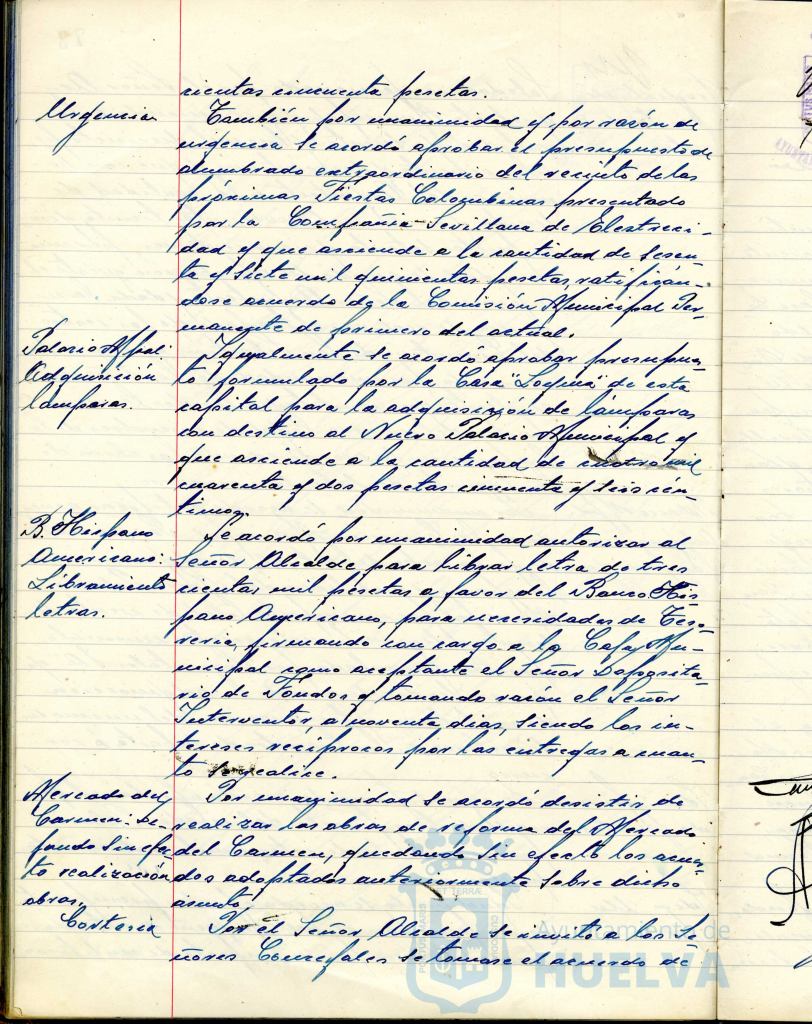 cientas cincuenta pesetas.
Urgencia
También por unanimidad y por razón de
urgencia se acordó aprobar el presupuesto de
alumbrado extraordinario del recinto de las
próximas Fiestas Colombinas presentado
por la Compañía Sevillana de Electrici-
dad y que asciende a la cantidad de sesen-
ta y siete mil quinientas pesetas, ratificán-
dose acuerdo de la Comisión Municipal Per-
manente de primero del actual.
Palacio Mpal:
Adquisición
lámparas.
Igualmente se acordó aprobar presupues-
to formulado por la Casa de esta
capital para la adquisición de lámparas
con destino al Nuevo Palacio Municipal y
que asciende a la cantidad de cuatro mil
cuarenta y dos pesetas cincuenta y seis cén-
timos.
B. Hispano
Americano:
Libramiento
letras.
Se acordó por unanimidad autorizar al
Señor Alcalde para librar letra de tres
cientas mil pesetas a favor del Banco His-
pano Americano, para necesidades de Teso-
rería, firmando con cargo a la Caja Mu-
nicipal como aceptante el Señor Deposita-
rio de Fondos y tomando razón el Señor
Interventor, a noventa días, siendo los in-
tereses recíprocos por las entregas a cuen-
to se realice.
Mercado del
Carmen: de-
jando sin efec-
to realización
obras.
Por unanimidad se acordó desistir de
realizar las obras de reforma del Mercado
del Carmen, quedando sin efecto los acuer-
dos adoptados anteriormente sobre dicho
asunto.
Cortesía
Por el Señor Alcalde se invitó a los Se-
ñores Concejales se tomase el acuerdo de
Ayuntamiento de
HUELVA